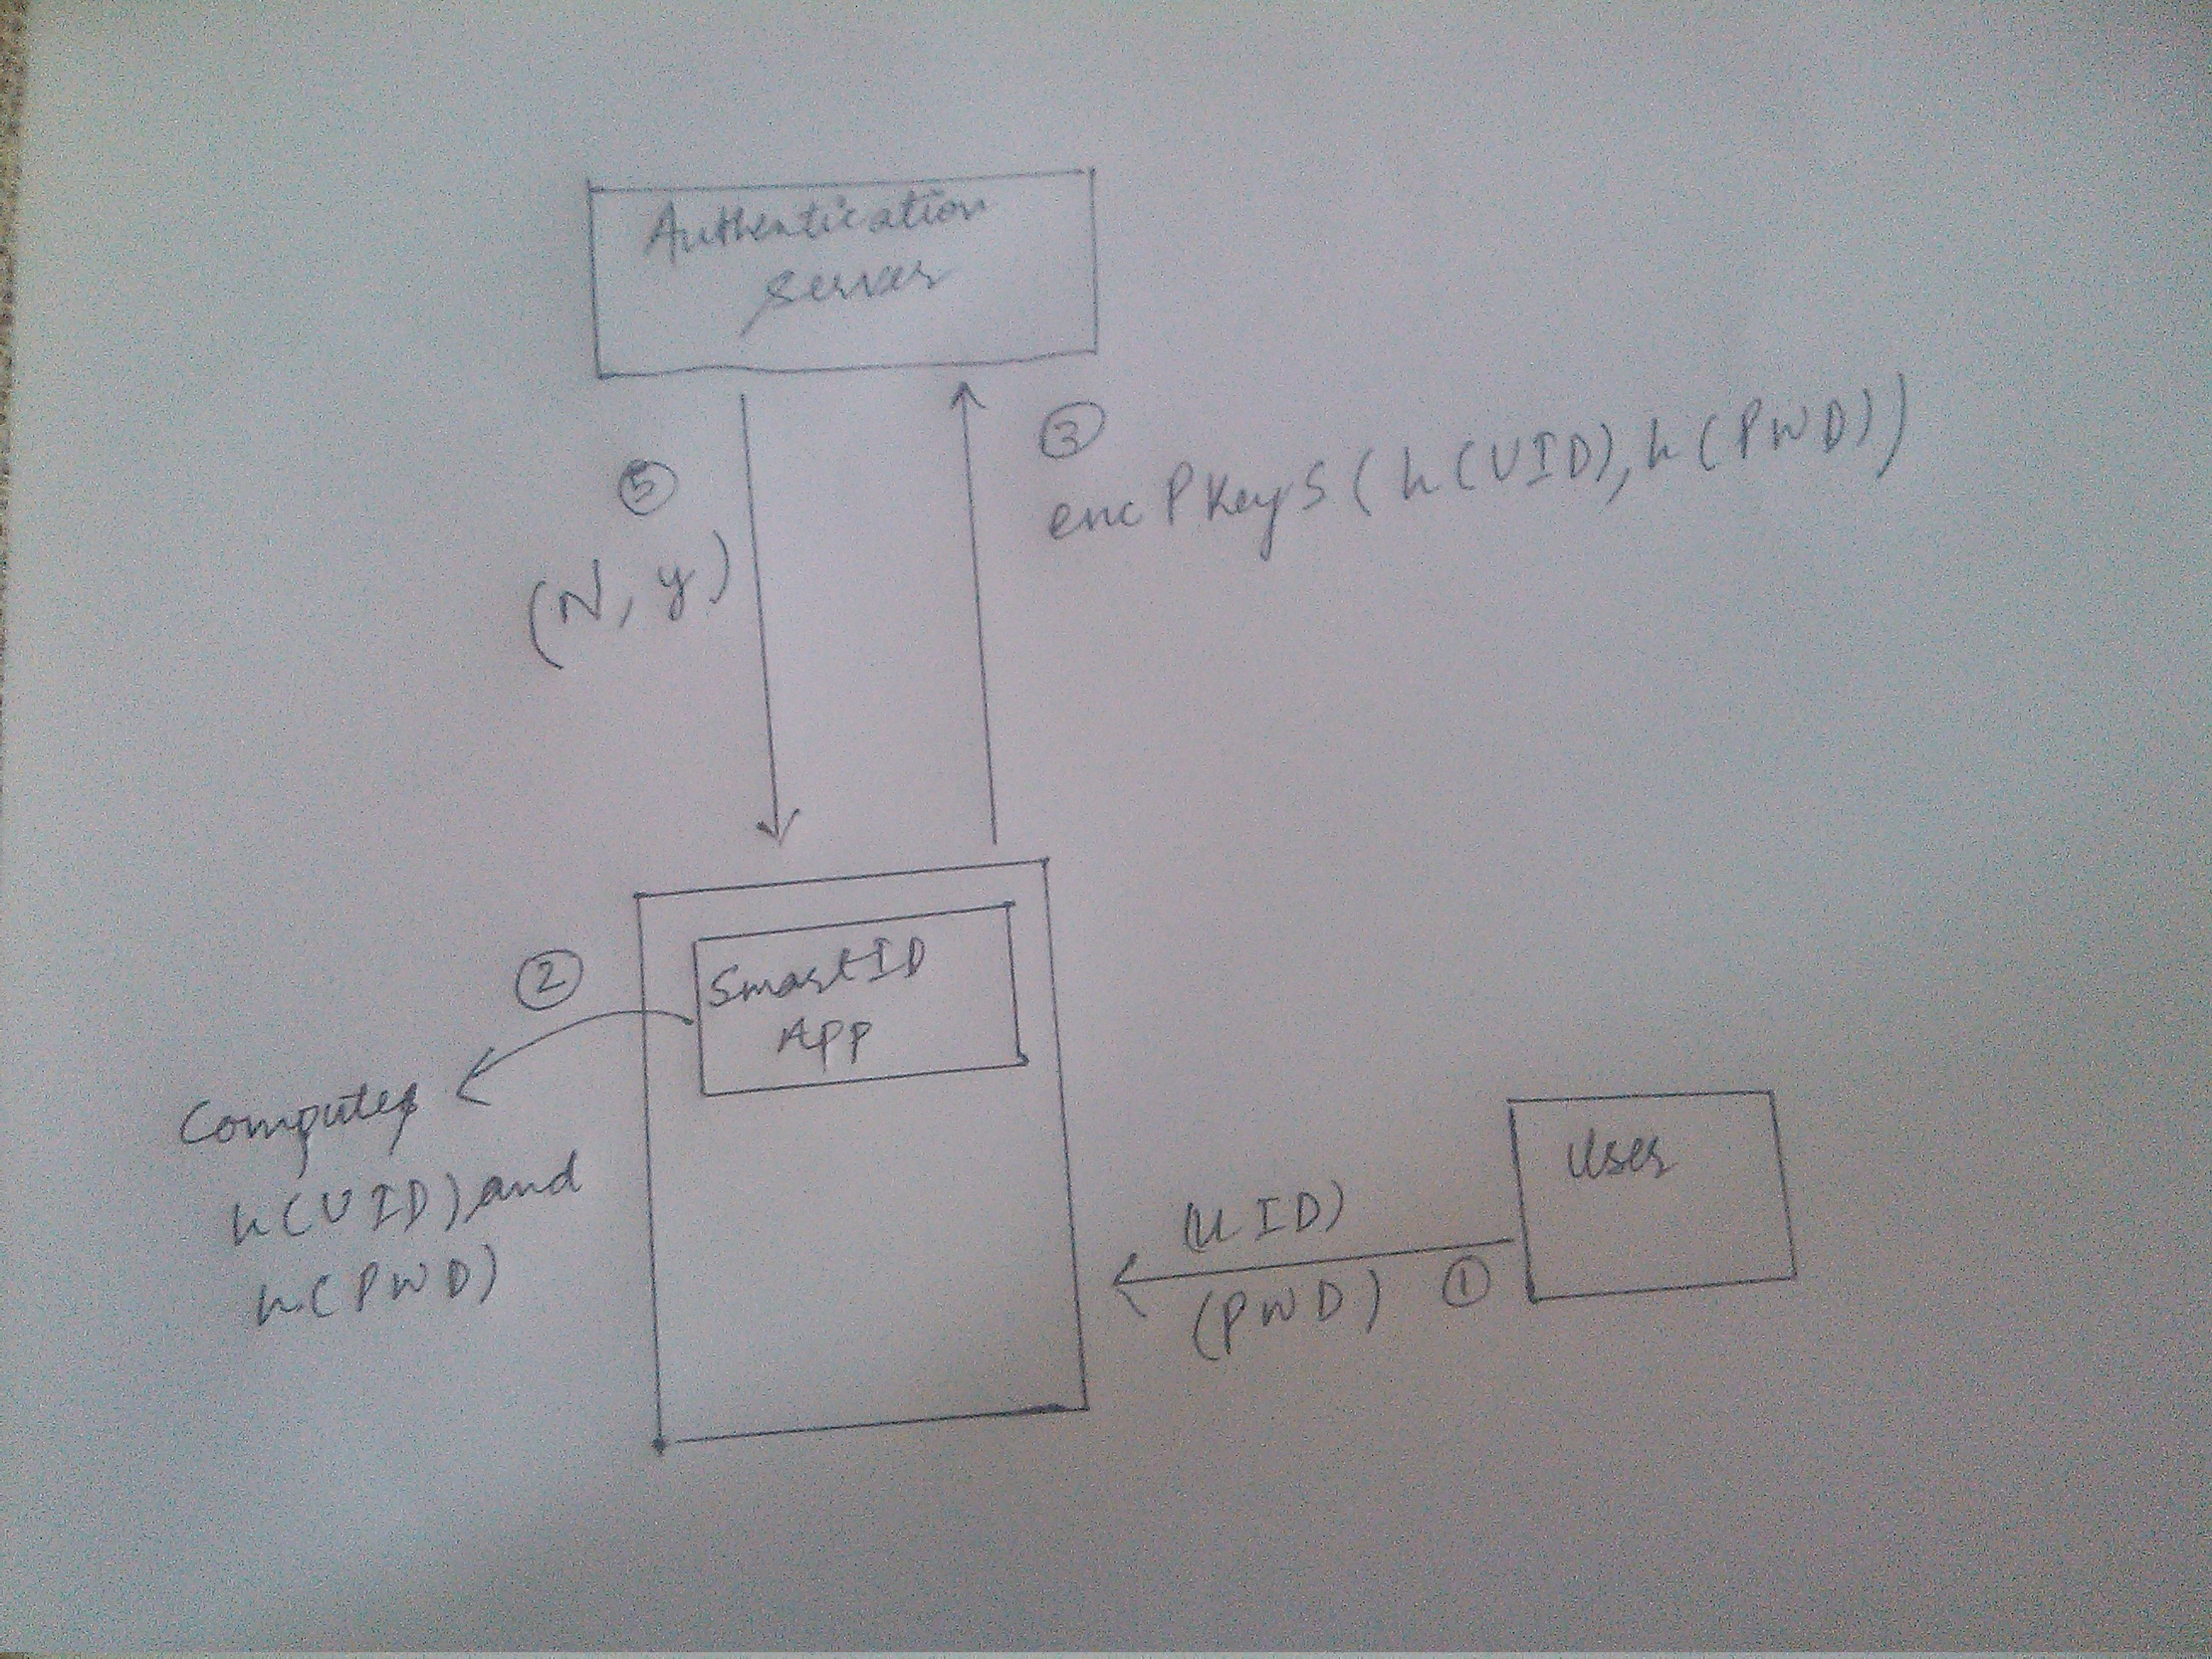 Authentication
Server
③
encPKeyS(h(UID), h(PWD))
⑤
(N, y)
SmartID
APP
②
Computes
h(UID) and
h(PWD)
User
(UID)
(PWD) ①